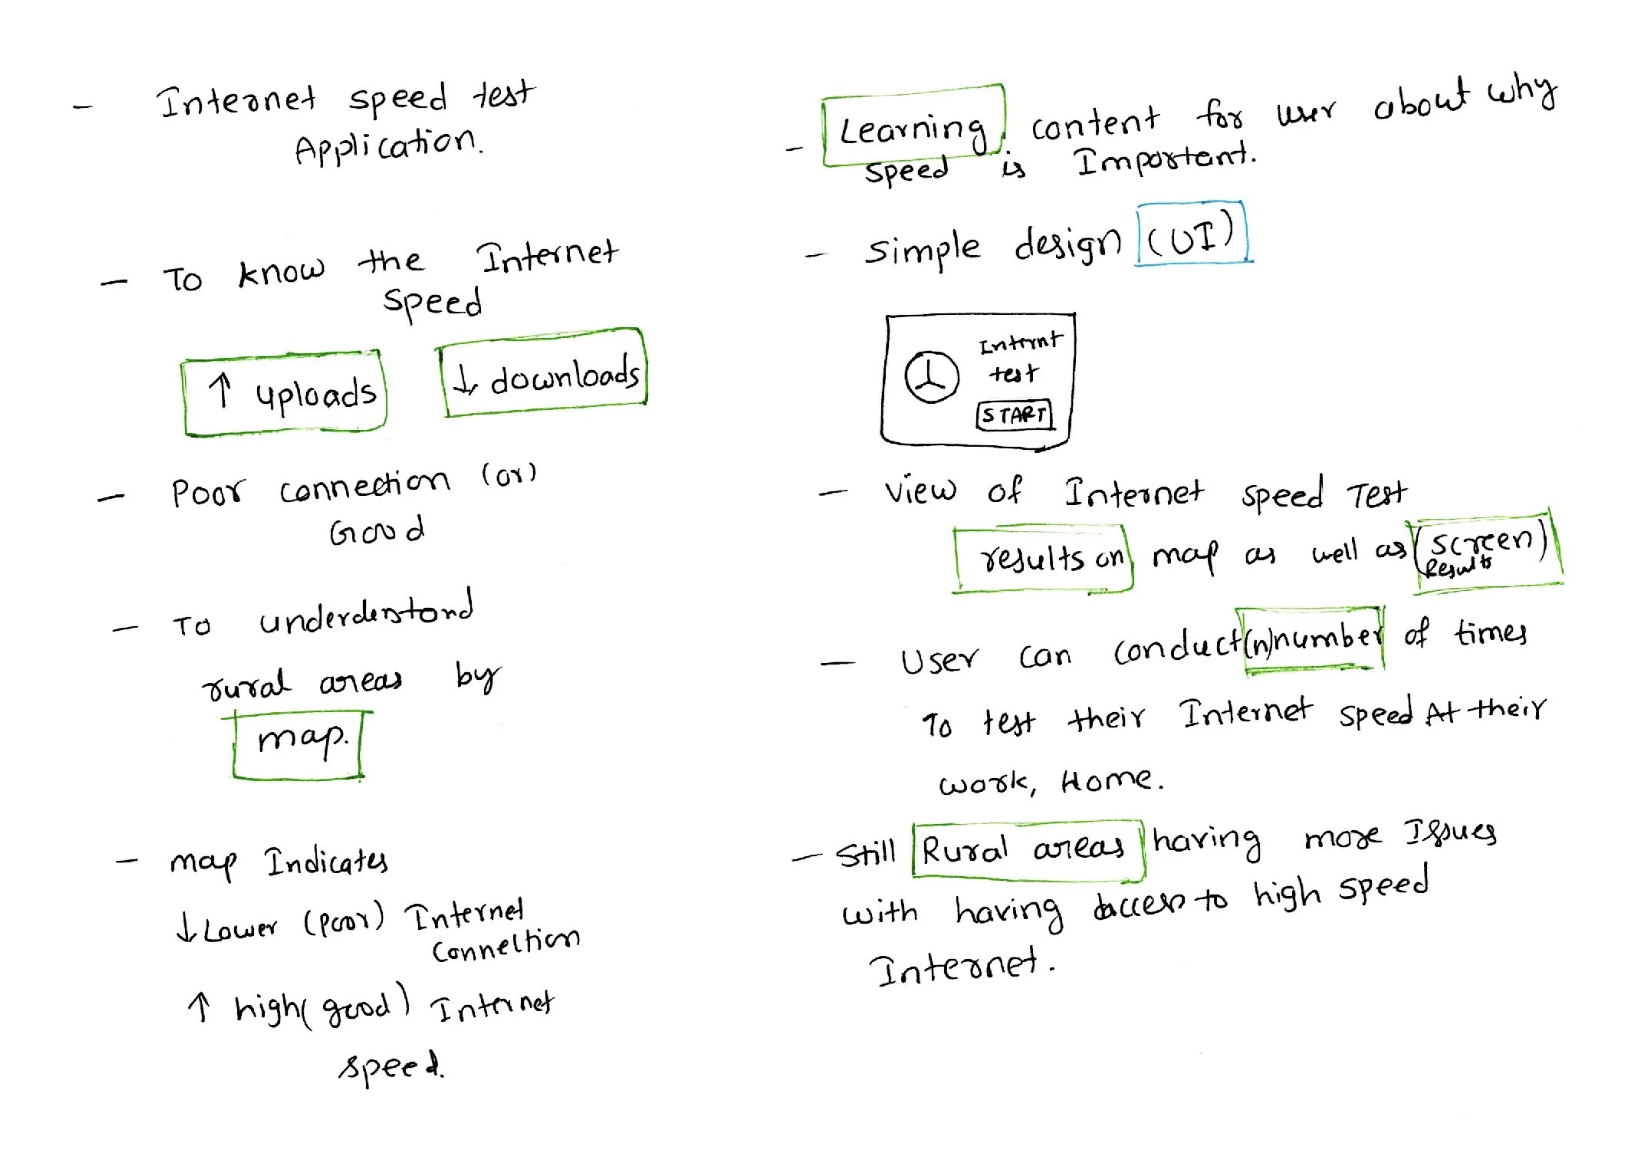 - Internet speed test
Application.
- To know the Internet
Speed
↑ uploads ↓ downloads
- Poor connection (or)
Good
- To underderstand
rural areas by
map.
- map Indicates
↓ Lower (poor) Internet
Connection
↑ high (good) Internet
speed.
- Learning content for user about why
speed is Important.
- Simple design (UI)
Intrnt
test
START
- View of Internet speed Test
results on map as well as (screen)
Results
- User can conduct (n) number of times
To test their Internet speed At their
work, Home.
- Still Rural areas having more Issues
with having access to high speed
Internet.